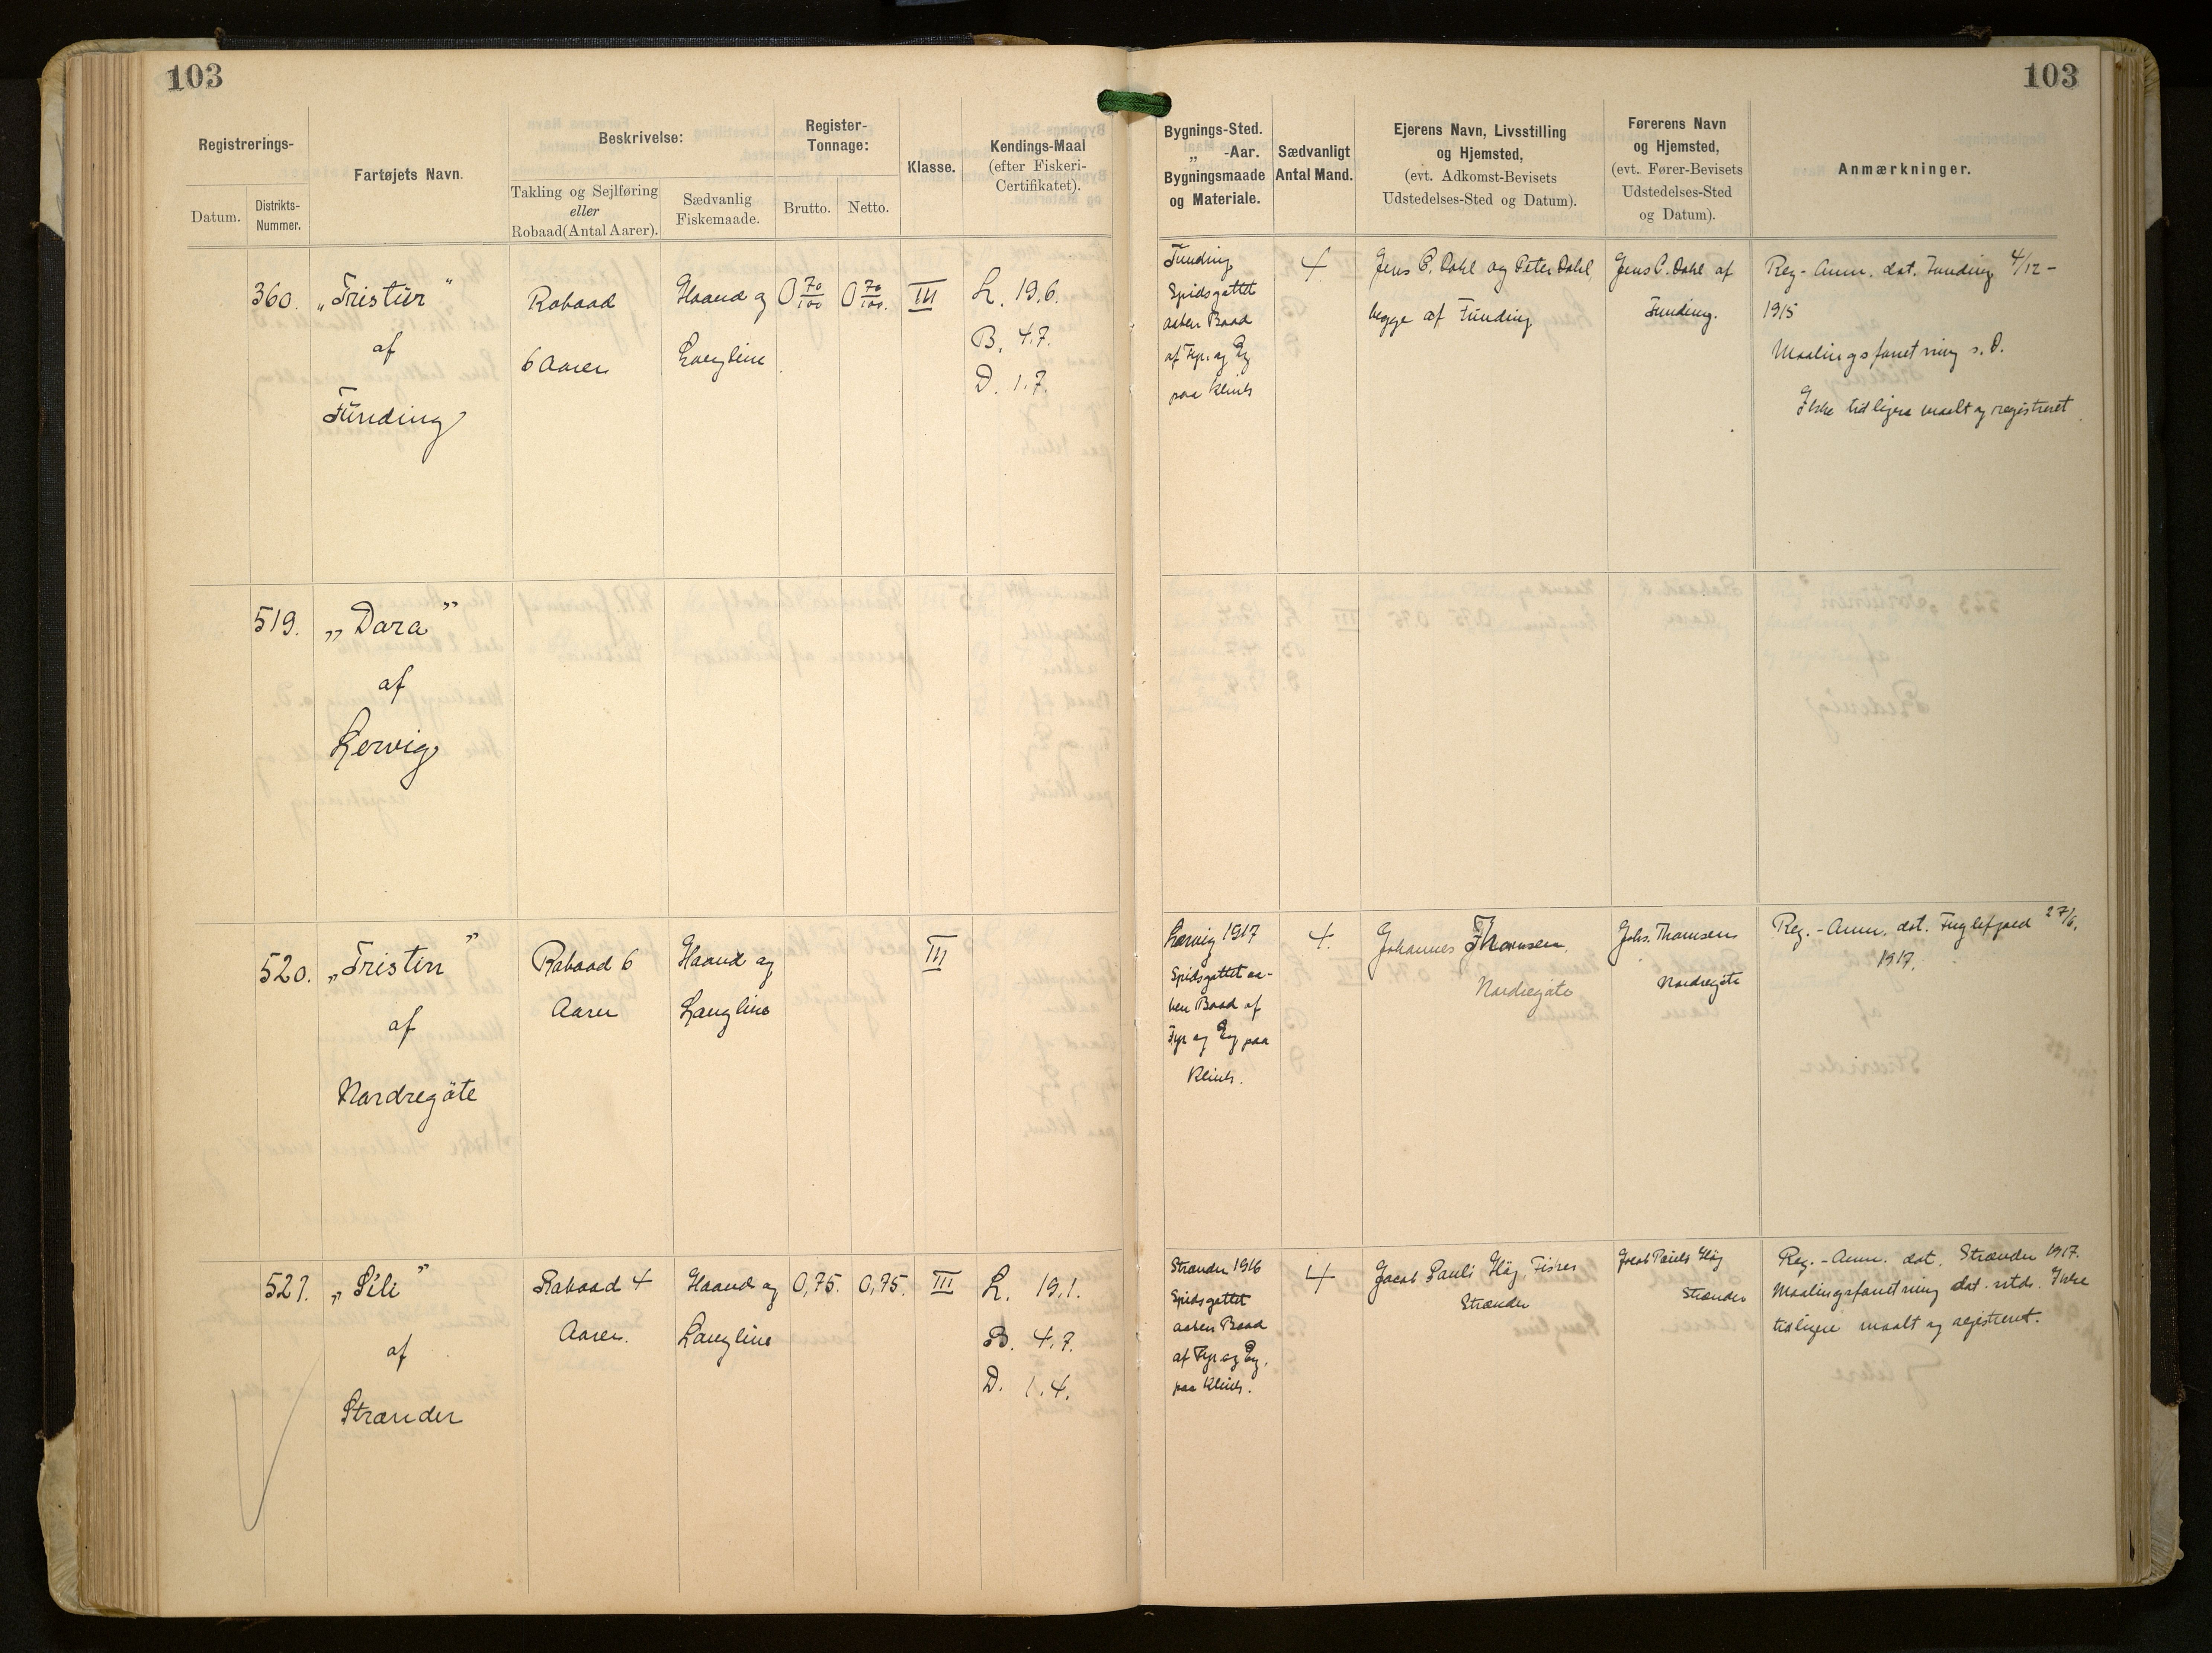 103
103
Registrerings-
Datum.
Distrikts-
Nummer.
Fartøjets Navn.
Beskrivelse:
Takling og Sejlføring
eller
Robaad (Antal Aarer).
Sædvanlig
Fiskemaade.
Register-
Tonnage:
Brutto.
Netto.
Klasse.
Kendings-Maal
(efter Fiskeri-
Certifikatet).
Bygnings-Sted.
„ -Aar.
Bygningsmaade
og Materiale.
Sædvanligt
Antal Mand.
Ejerens Navn, Livsstilling
og Hjemsted,
(evt. Adkomst-Bevisets
Udstedelses-Sted og Datum).
Førerens Navn
og Hjemsted,
(evt. Fører-Bevisets
Udstedelses-Sted
og Datum).
Anmærkninger.
360.
„Tristur"
af
Funding
Robaad
6 Aarer
Haand og
Langline
0 70/100
0 70/100.
III
L. 19.6.
B. 4.7.
D. 1.7.
Funding
Spidsgattet
aaben Baad
af Fyr. og Eg
paa Klink
4
Jens C. Dahl og Peter Dahl
begge af Funding
Jens C. Dahl af
Funding.
Reg- Anm. dat. Funding 4/12 -
1915
Maalingsforretning s. D.
Ikke tidligere maalt og registreret
519.
„Dara"
af
Lervig
520.
„Tristin"
af
Nordregöte
Robaad 6
Aarer
Haand og
Langline
III
Lervig 1917
Spidsgattet aa-
ben Baad af
Fyr og Eg paa
Klink.
4.
Johannes Thomsen
Nordregöte
Johs. Thomsen
Nordregöte
Reg. - Anm. dat. Fuglefjord 27/6.
1917.
521.
„Sili"
af
Strænder
Robaad 4
Aarer.
Haand og
Langline
0,75.
0,75.
III
L. 19,1.
B. 4.7.
D. 1.4.
Strænder 1916
Spidsgattet
aaben Baad
af Fyr og Eg.
paa Klink.
4
Jacob Pauli Høj, Fisker
Strænder
Jacob Pauli Høj
Strænder
Reg. - Anm. dat. Strænder 1917.
Maalingsforretning dat. Ikke
tidligere maalt og registreret.